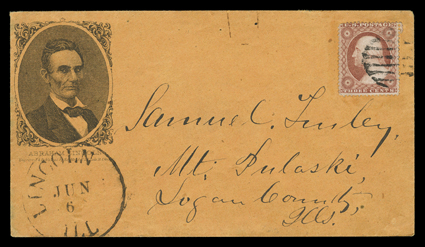 U.S. POSTAGE
THREE CENTS
Samuel C. Tinsley,
Mt. Pulaski,
Logan County,
Ills.
LINCOLN
JUN
6
ILL